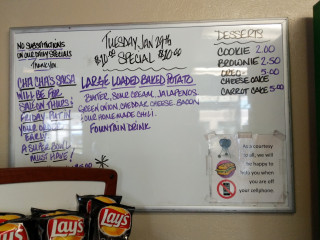 NO SUBSTITUTIONS
ON OUR DAILY SPECIALS
THANK YOU
CHA CHA'S SALSA
WILL BE FOR
SALE ON THURS!
FRIDAY. PUT IN
YOUR ORDER
EARLY
A SUPER BOWL
MUST HAVE!
TUESDAY JAN 29TH
$10.00 SPECIAL $10.00
LARGE LOADED BAKED POTATO
BUTTER, SOUR CREAM, JALAPENOS
GREEN ONION, CHEDDAR CHEESE, BACON
& OUR HOMEMADE CHILI.
FOUNTAIN DRINK
DESSERTS
COOKIE 2.00
BROWNIE 2.50
OREO 5.00
CHEESECAKE
CARROT CAKE 5.00
As a courtesy
to all, we will
be happy to
help you when
you are off
your cellphone
Lay's
Lay's
Lay's